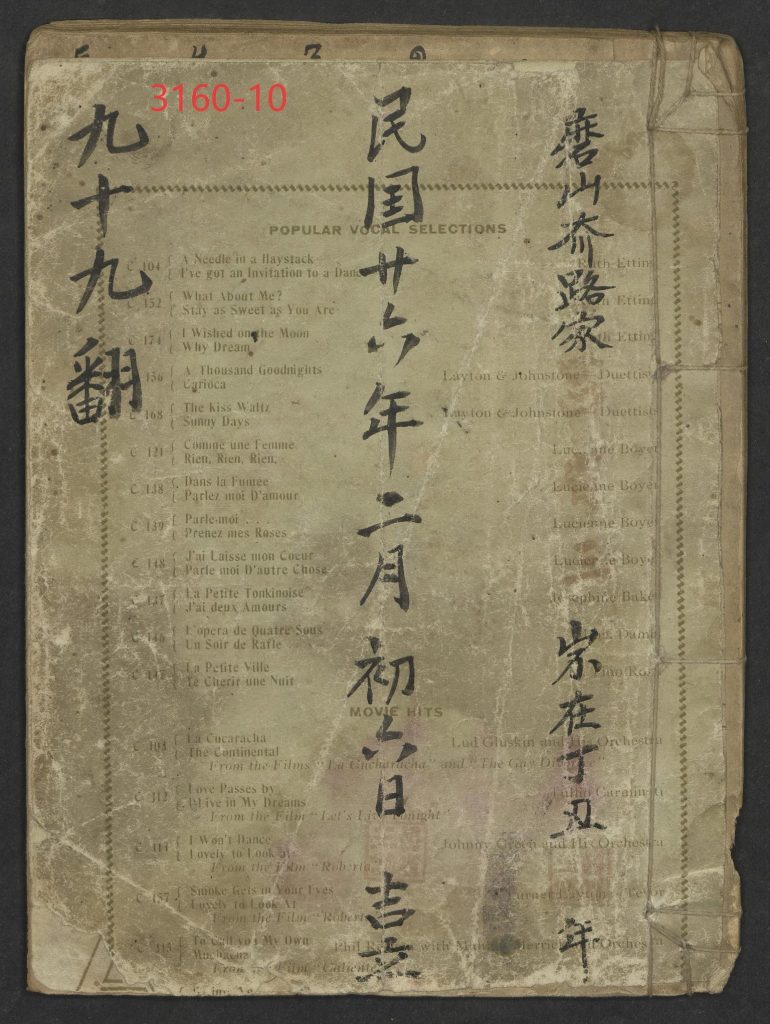 3160-10
民国廿六年二月初六日 吉立
九十九翻
路家
宗在丁丑 年
POPULAR VOCAL SELECTIONS
C 104 { A Needle in a Haystack Ruth Etting
I've got an Invitation to a Dance
C 152 { What About Me? Etting
Stay as Sweet as You Are
C 174 { I Wished on the Moon Etting
Why Dream
156 { A Thousand Goodnights Layton & Johnstone—Duettists
Carioca
168 { The Kiss Waltz Layton & Johnstone—Duettists
Sunny Days
C 121 { Comme une Femme Lucienne Boyer
Rien, Rien, Rien.
C 138 { Dans la Fumee Lucienne Boyer
Parlez moi D'amour
C 139 { Parle-moi . . . Lucienne Boyer
Prenez mes Roses
C 148 { J'ai Laisse mon Coeur Lucienne Boyer
Parle moi D'autre Chose
137 { La Petite Tonkinoise Josephine Baker
J'ai deux Amours
C 146 { L'opera de Quatre Sous Damia
Un Soir de Rafle
C 147 { La Petite Ville
Te Cherir une Nuit
MOVIE HITS
C 103 { La Cucaracha Lud Gluskin and His Orchestra
The Continental
From the Films "La Cucharacha" and "The Gay Divorce"
C 112 { Love Passes by
I Live in My Dreams
From the Film "Let's Live Tonight"
C 114 { I Won't Dance Johnny Green and His Orchestra
Lovely to Look at
From the Film "Roberta
C 157 { Smoke Gets in Your Eyes
Lovely to Look At
From the Film "Roberta
C 113 { To Call You My Own Phil with Orchestra
Muchacha
From the Film "Caliente